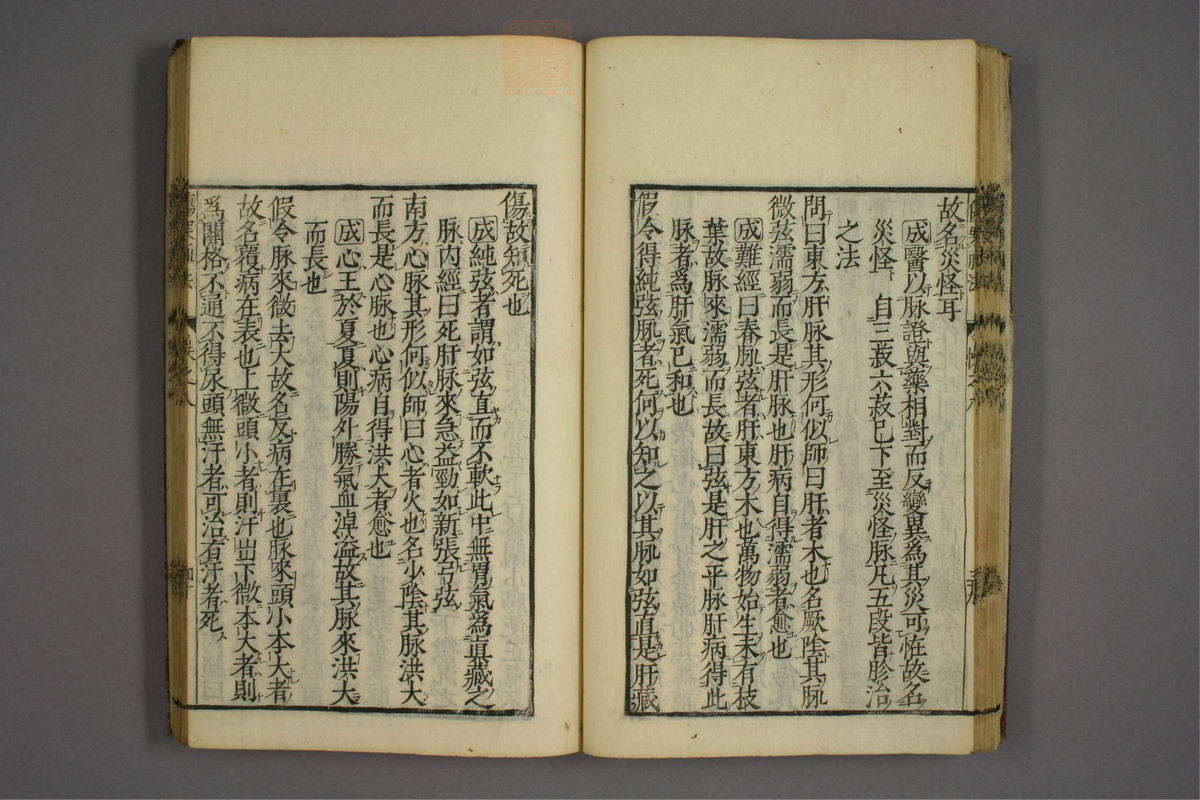 故名災怪耳
成醫以脉證與藥相對而反變異為其災可恠故名
災怪 自三菽六菽已下至災怪脉凡五段皆胗治
之法
問曰東方肝脉其形何似師曰肝者木也名厥陰其脉
微弦濡弱而長是肝脉也肝病自得濡弱者愈也
成難經曰春脉弦者肝東方木也萬物始生未有枝
葉故脉來濡弱而長故曰弦是肝之平脉肝病得此
脉者為肝氣已和也
假令得純弦脉者死何以知之以其脉如弦直是肝藏
傷故知死也
成純弦者謂如弦直而不軟此中無胃氣為眞藏之
脉内經曰死肝脉來急益勁如新張弓弦
南方心脉其形何似師曰心者火也名少陰其脉洪大
而長是心脉也心病自得洪大者愈也
成心王於夏夏則陽外勝氣血淖溢故其脉來洪大
而長也
假令脉來微去大故名反病在裏也脉來頭小本大者
故名覆病在表也上微頭小者則汗出下微本大者則
為關格不通不得尿頭無汗者可治有汗者死